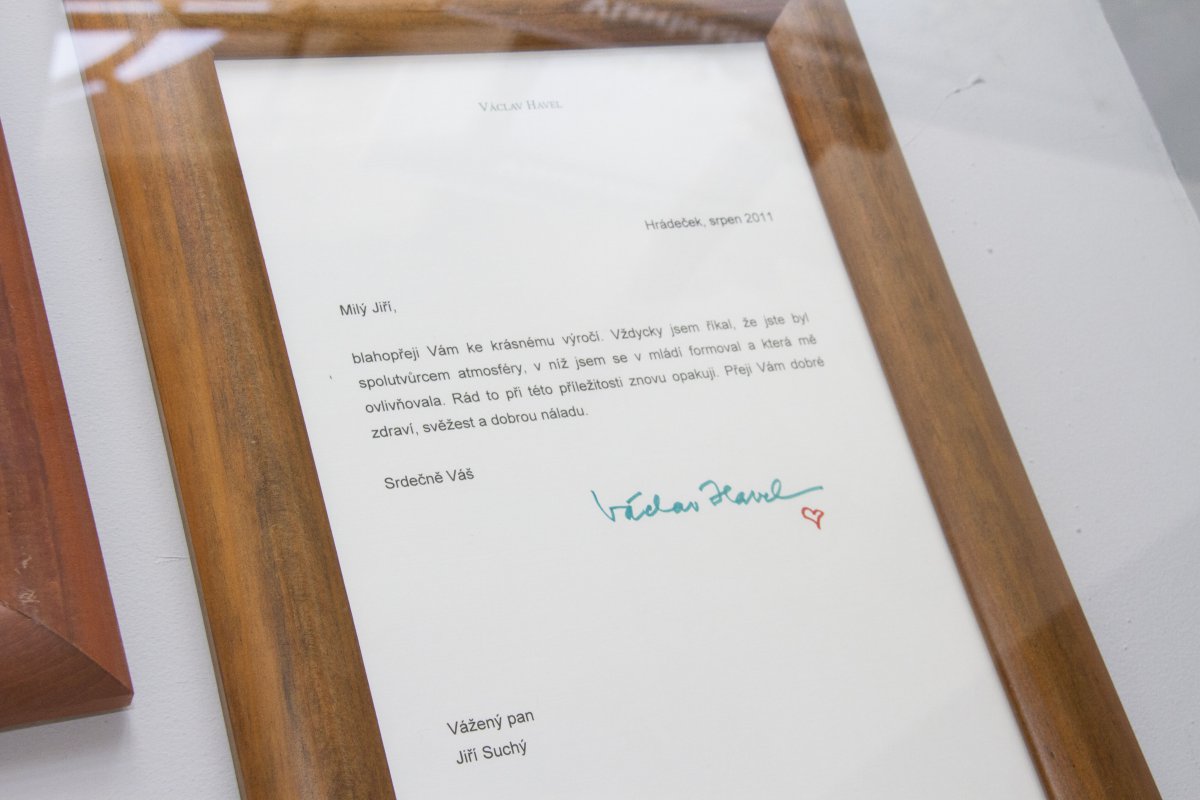 Václav Havel
Hrádeček, srpen 2011
Milý Jiří,
blahopřeji Vám ke krásnému výročí. Vždycky jsem říkal, že jste byl
spolutvůrcem atmosféry, v níž jsem se v mládí formoval a která mě
ovlivňovala. Rád to při této příležitosti znovu opakuji. Přeji Vám dobré
zdraví, svěžest a dobrou náladu.
Srdečně Váš
Václav Havel
Vážený pan
Jiří Suchý